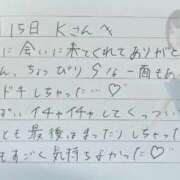 月15日 Kさんへ
に会いに来てくれてありがと
ん、ちょっぴりSな一面もあ
ドキしちゃった…♡
ばいイチャイチャしてくっつい
とも最後はまったりしちゃった
もすごく気持ちよかった♡